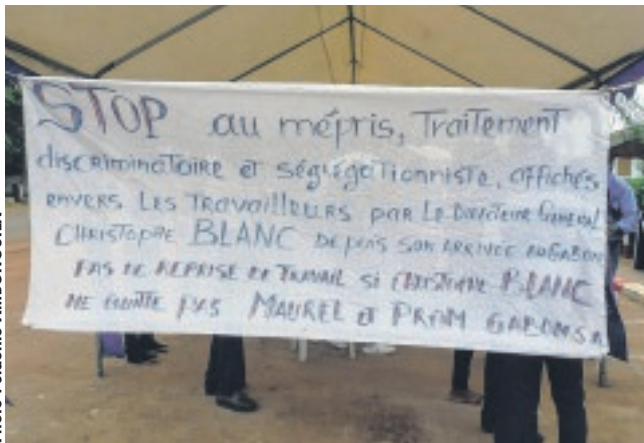 STOP au mépris, Traitement
discriminatoire et ségrégationniste, affichés
envers Les Travailleurs par Le Directeur General
CHRISTOPHE BLANC DEPUIS SON ARRIVEE AU GABON
PAS DE REPRISE DE TRAVAIL SI CHRISTOPHE BLANC
NE QUITTE PAS MAUREL et PROM GABON SA